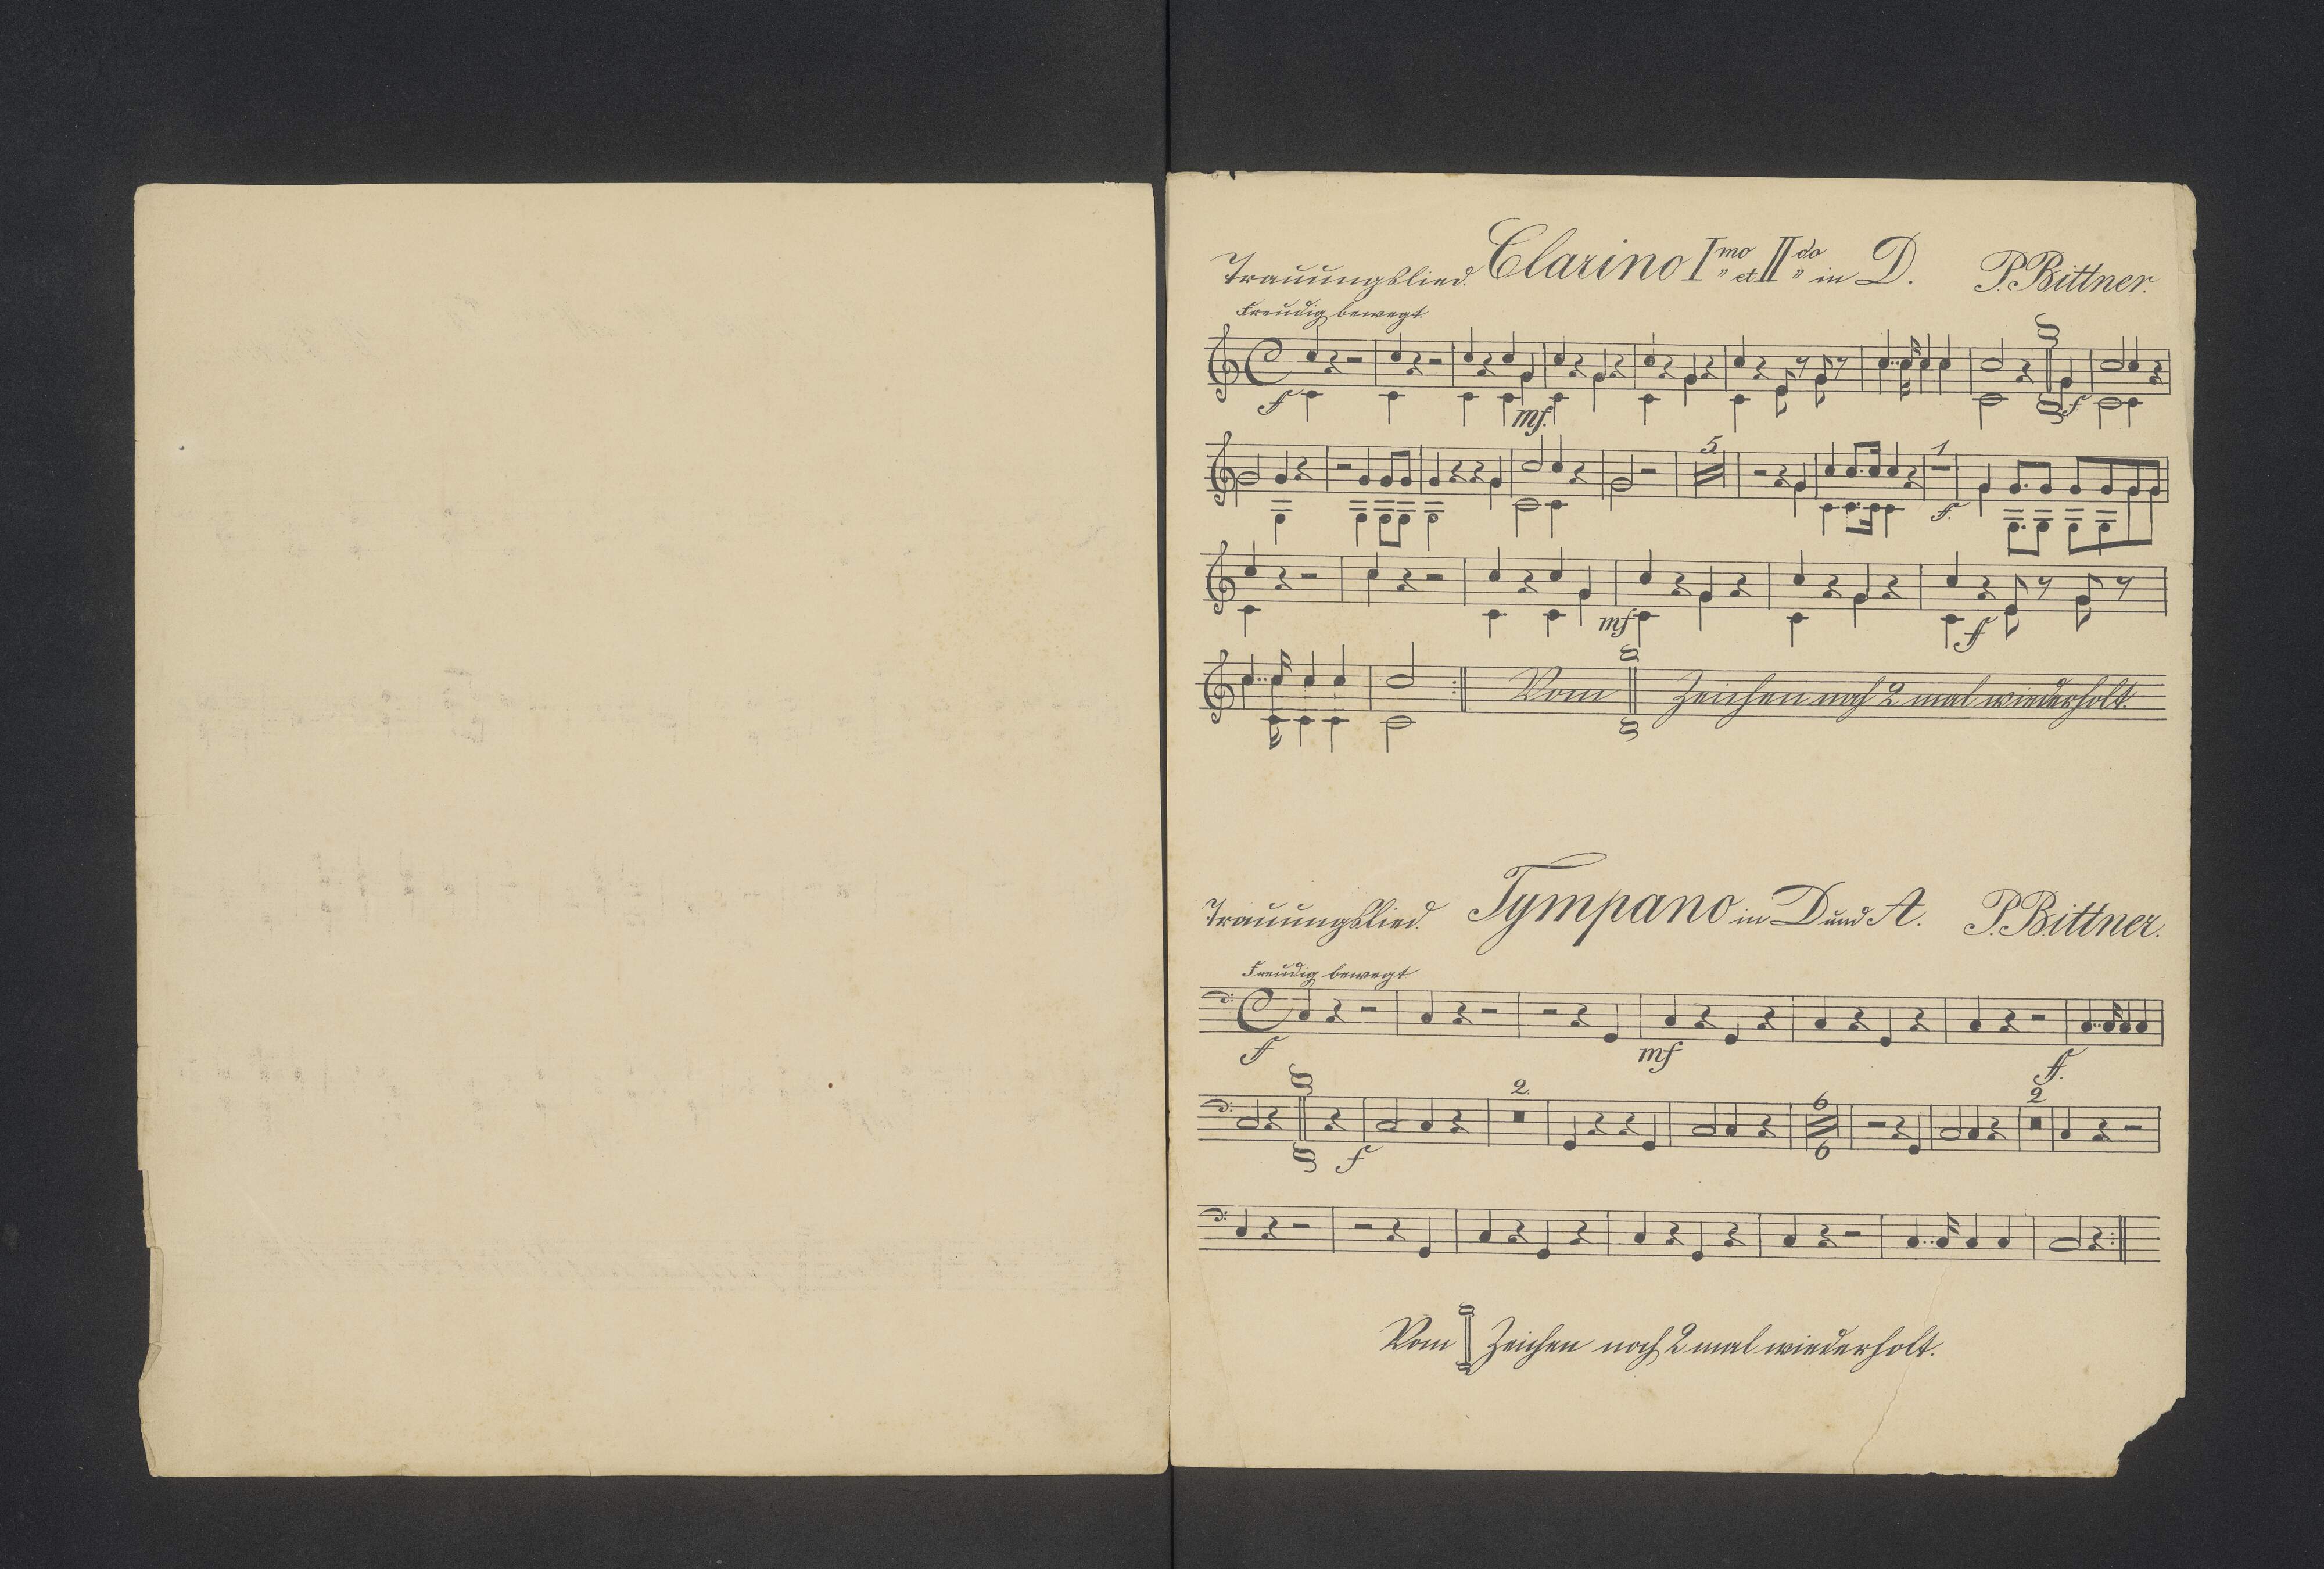 Trauungslied. Clarino Imo et IIdo in D. P. Bittner.
Freudig bewegt.
f mf. f
5 1 f.
mf f
Vom Zeichen noch 2 mal wiederholt.
Trauungslied. Tympano in D und A. P. Bittner.
Freudig bewegt
f mf f.
2. 6 2
f 6
Vom Zeichen noch 2 mal wiederholt.